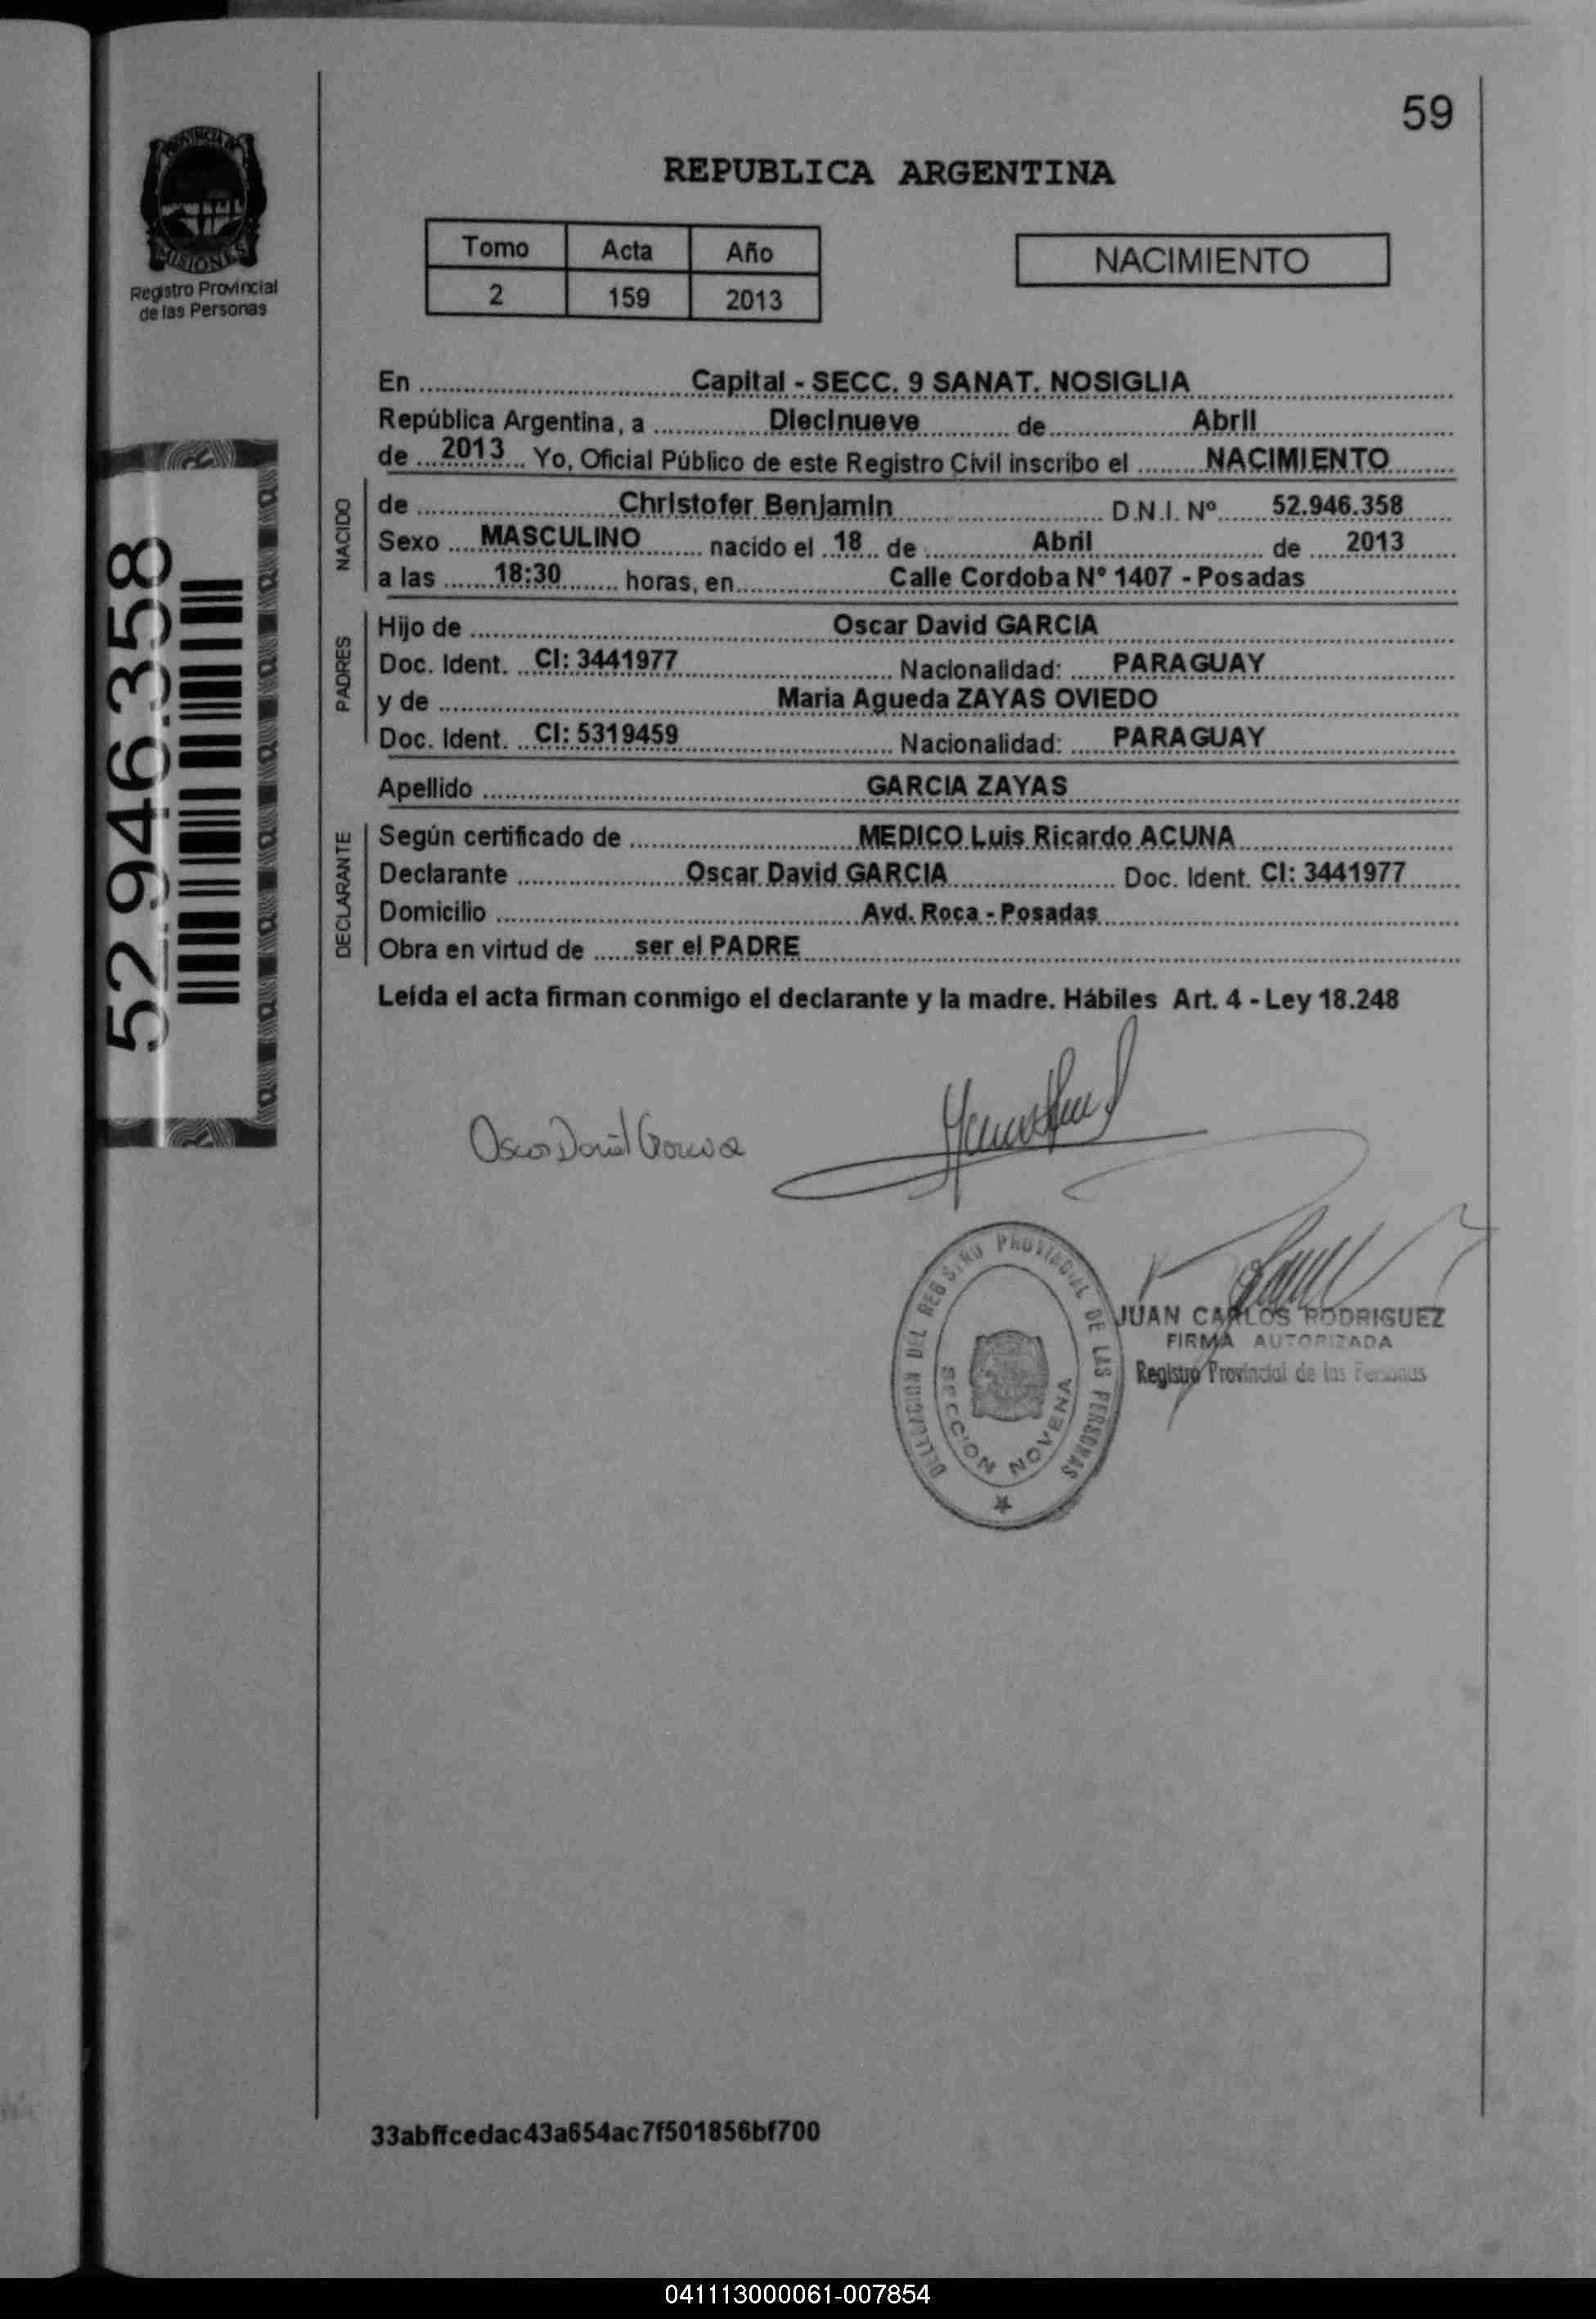 59
PROVINCIA DE
MISIONES
Registro Provincial
de las Personas
REPUBLICA ARGENTINA
Tomo Acta Año
2 159 2013
NACIMIENTO
En Capital - SECC. 9 SANAT. NOSIGLIA
República Argentina, a Diecinueve de Abril
de 2013 Yo, Oficial Público de este Registro Civil inscribo el NACIMIENTO
NACIDO
de Christofer Benjamin D.N.I. Nº 52.946.358
Sexo MASCULINO nacido el 18 de Abril de 2013
a las 18:30 horas, en Calle Cordoba Nº 1407 - Posadas
PADRES
Hijo de Oscar David GARCIA
Doc. Ident. CI: 3441977 Nacionalidad: PARAGUAY
y de Maria Agueda ZAYAS OVIEDO
Doc. Ident. CI: 5319459 Nacionalidad: PARAGUAY
Apellido GARCIA ZAYAS
DECLARANTE
Según certificado de MEDICO Luis Ricardo ACUNA
Declarante Oscar David GARCIA Doc. Ident. CI: 3441977
Domicilio Avd. Roca - Posadas
Obra en virtud de ser el PADRE
Leída el acta firman conmigo el declarante y la madre. Hábiles Art. 4 - Ley 18.248
52.946.358
Oscar David Garcia
DELEGACION DEL REGISTRO PROVINCIAL DE LAS PERSONAS
SECCION NOVENA
JUAN CARLOS RODRIGUEZ
FIRMA AUTORIZADA
Registro Provincial de las Personas
33abffcedac43a654ac7f501856bf700
041113000061-007854